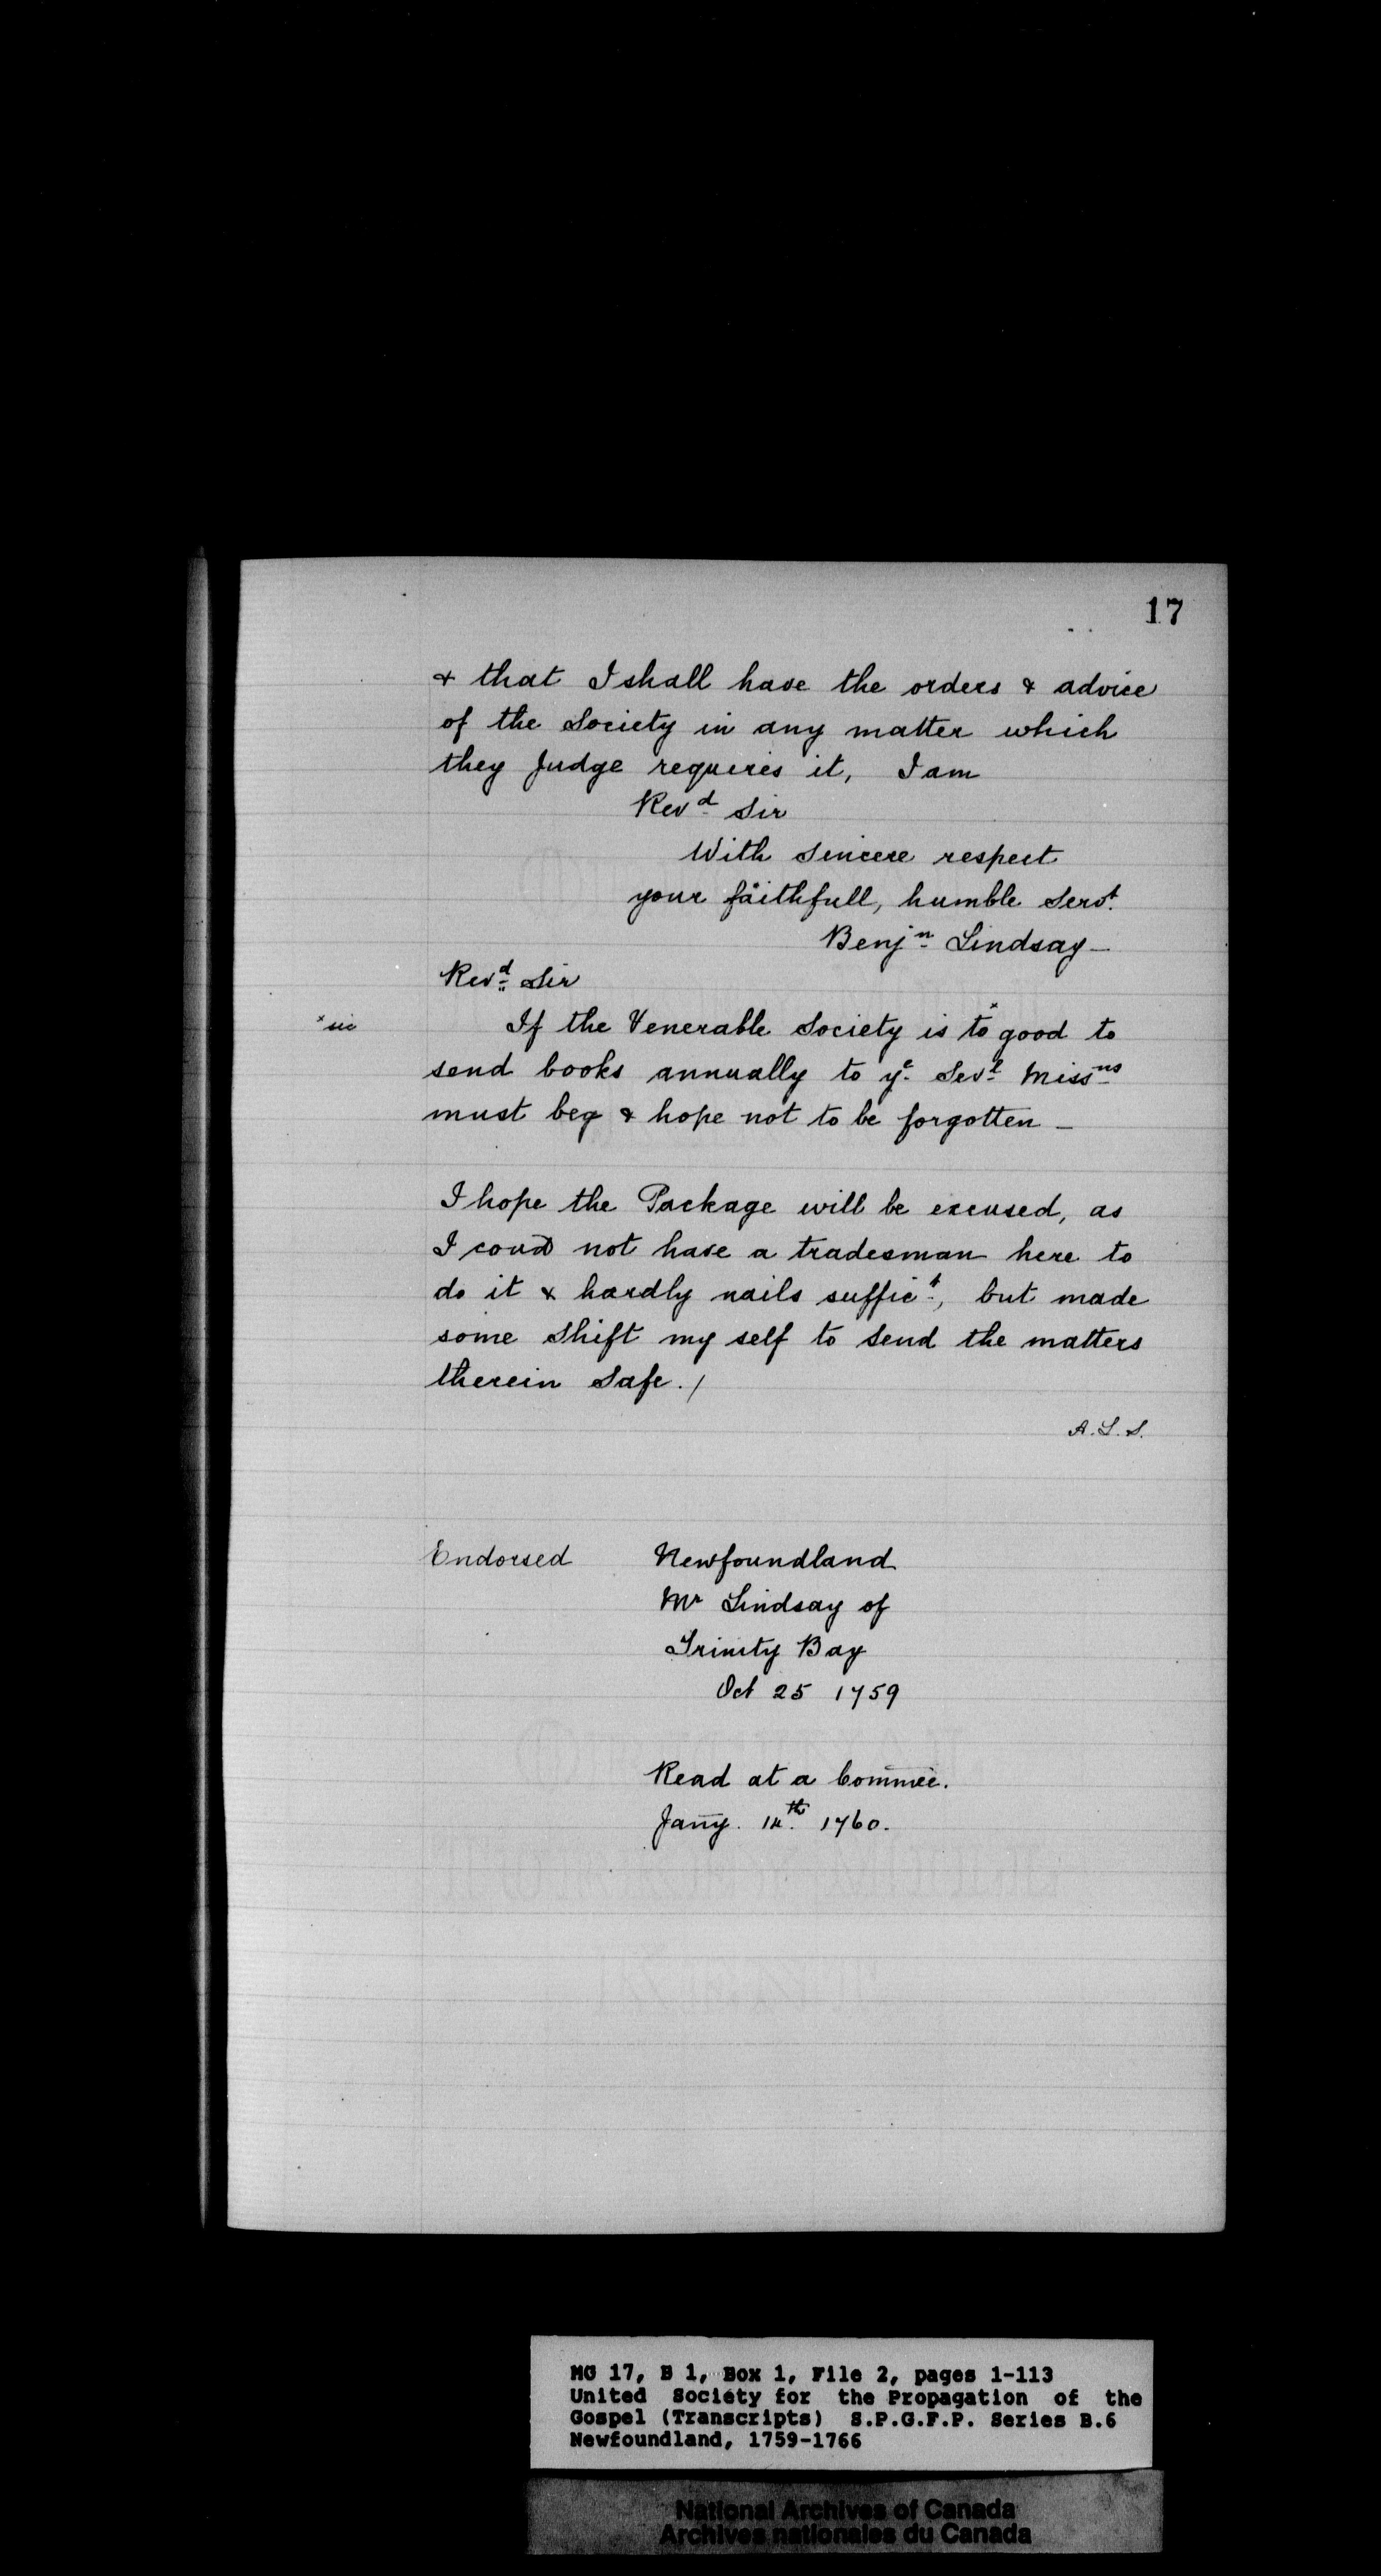 17
& that I shall have the orders & advice
of the Society in any matter which
they Judge requires it, I am
Revd Sir
With sincere respect
your faithfull, humble Servt.
Benjn Lindsay_
Revd Sir
If the Venerable Society is to* good to
*sic
send books annually to ye Sevl Missns
must beg & hope not to be forgotten _
I hope the Package will be excused, as
I coud not have a tradesman here to
do it & hardly nails suffict, but made
some shift my self to send the matters
therein Safe. /
A.L.S.
Endorsed Newfoundland
Mr Lindsay of
Trinity Bay
Oct 25 1759
Read at a Commee.
Jany. 14th. 1760.
MG 17, B 1, Box 1, File 2, pages 1-113
United Society for the Propagation of the
Gospel (Transcripts) S.P.G.F.P. Series B.6
Newfoundland, 1759-1766
National Archives of Canada
Archives nationales du Canada